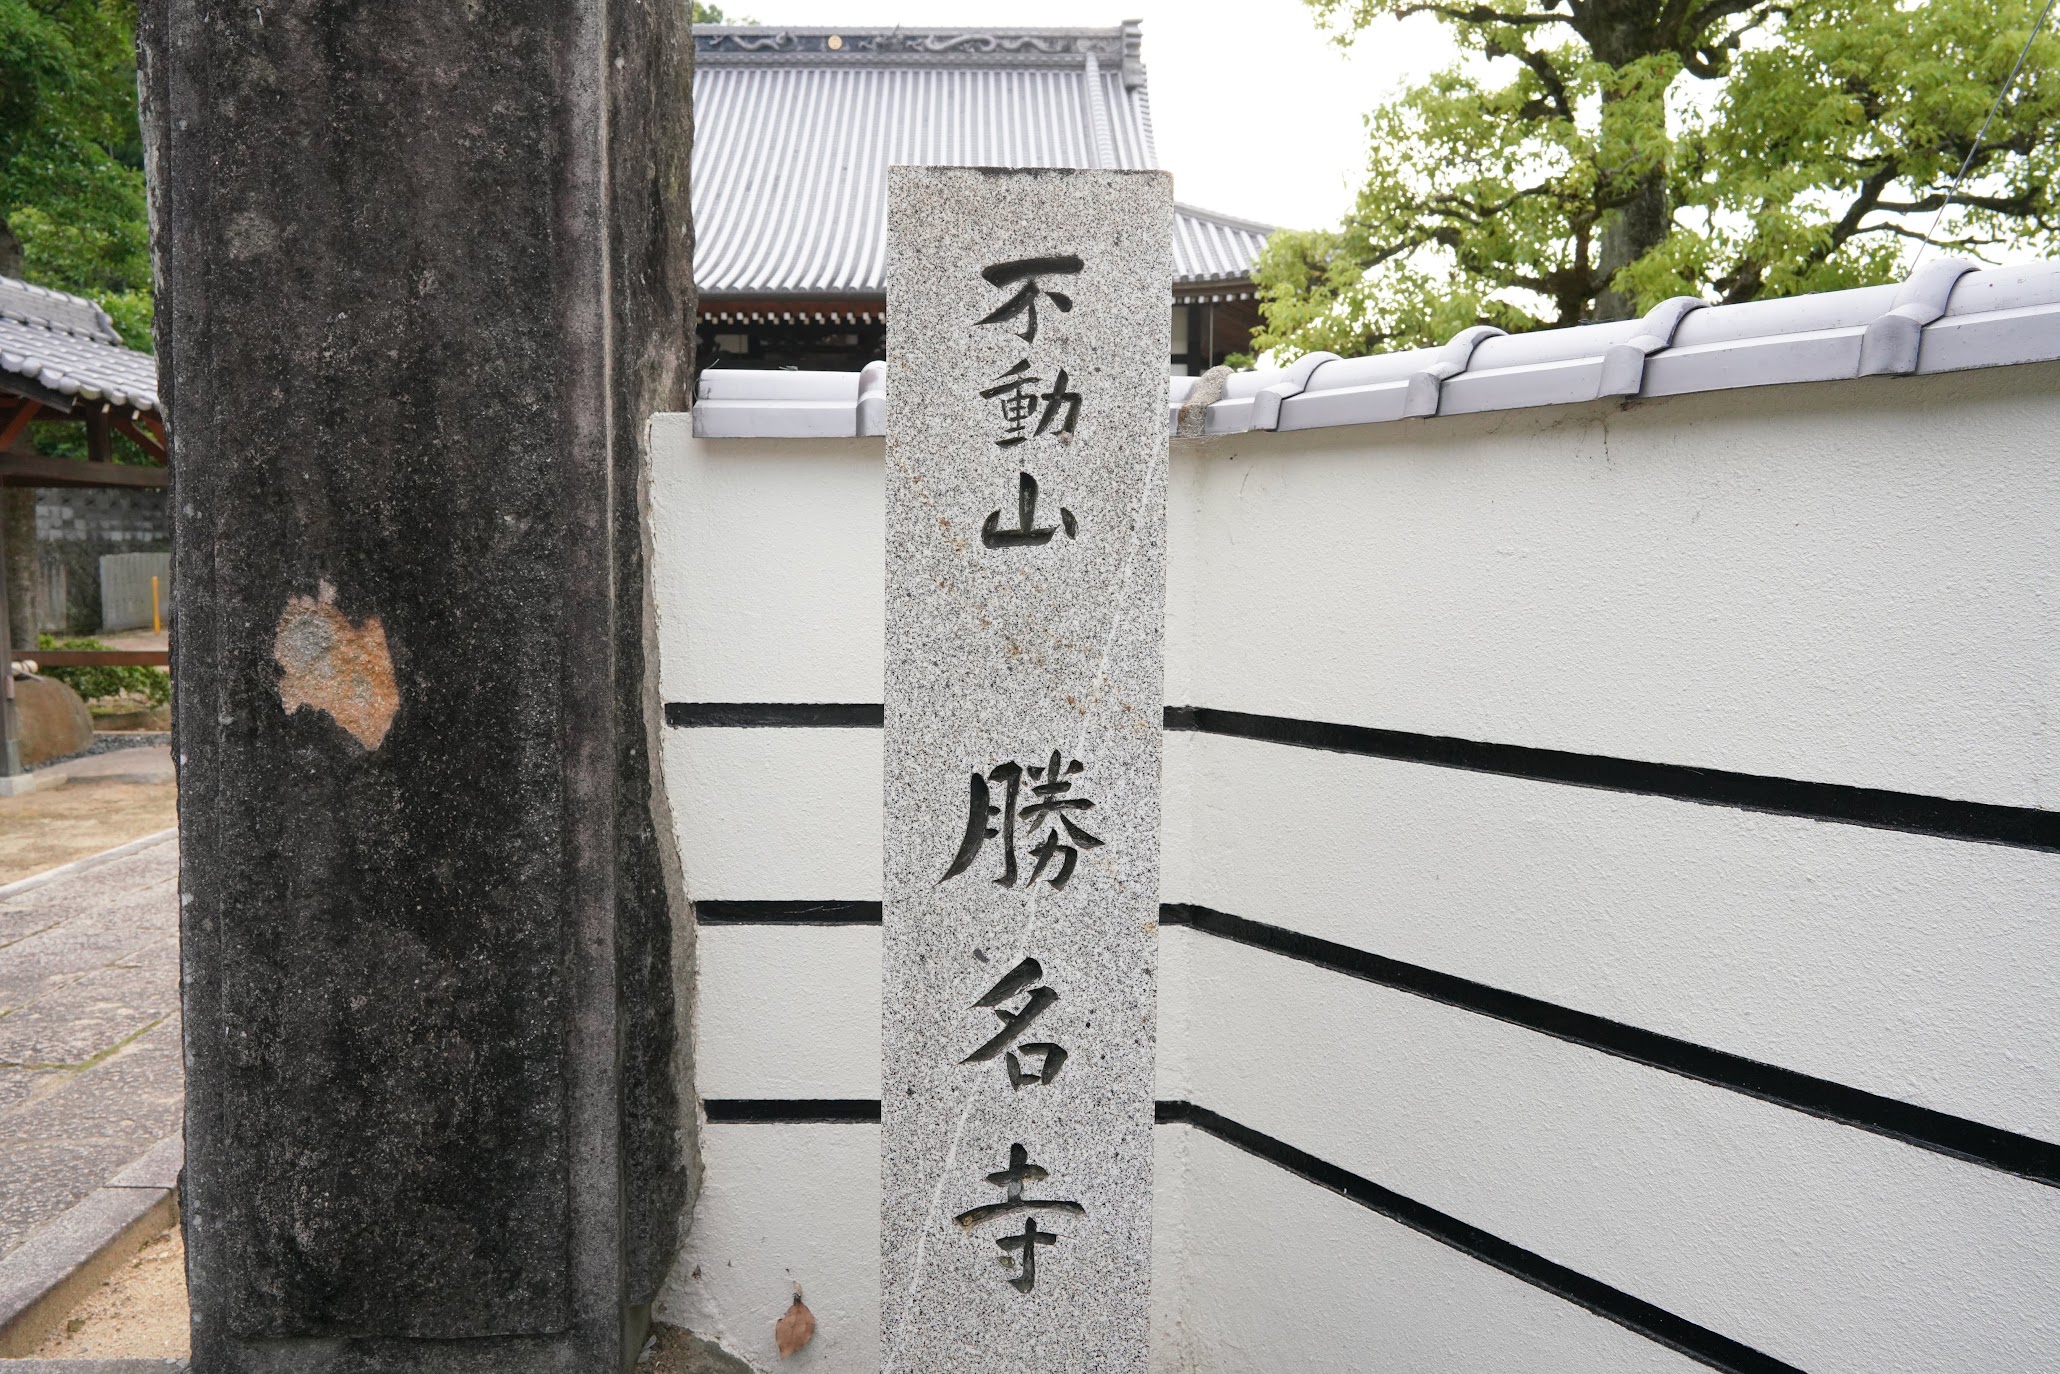 不動山 勝名寺